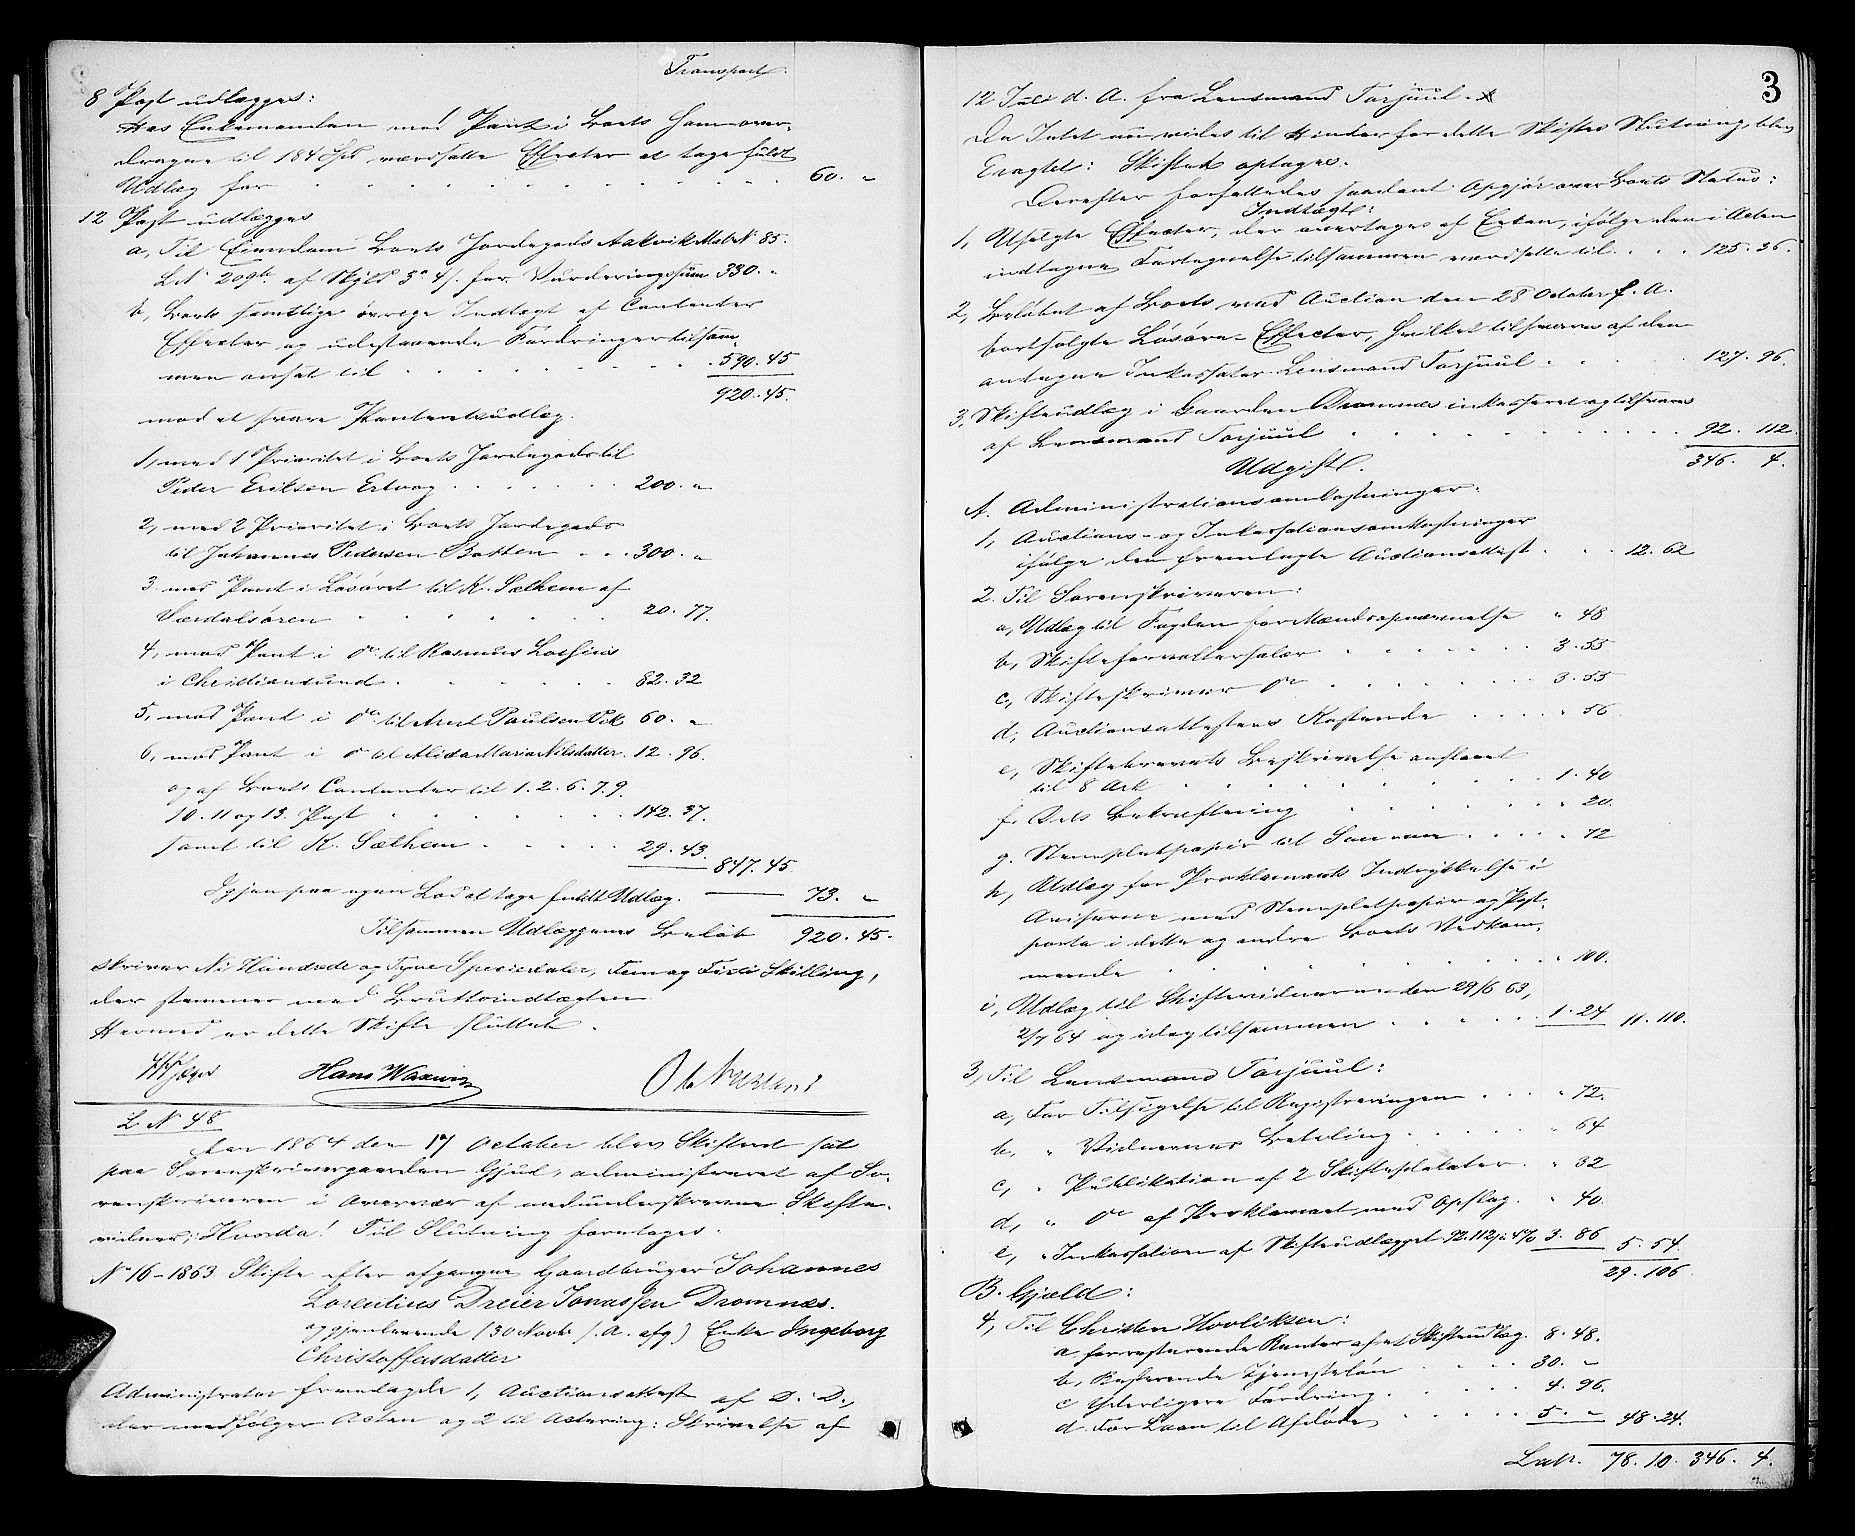 Transport.
8 Post udlægges:
Hos Enkemanden mod Pant i Boets ham over-
dragne til 184 Spd værdsatte Effecter at tage fuldt
Udlæg for 60. "
12 Post udlægges
a, Til Eiendom Boets Jordegods Aakvik Mat. N 85.
L N 209b af Skyld 3 " 4 s. for Vurderingssum 330. "
b, Boets samtlige øvrige Indtægt af Contanter
Effecter og udestaaende Fordringer tilsam-
men anset til 590. 45
920. 45.
mod at svare Panteretsudlæg.
1, med 1 Prioritet i Boets Jordegods til
Peder Eriksen Ertvog 200. "
2, med 2 Prioritet i Boets Jordegods
til Johannes Pedersen Botten 300. "
3. med Pant i Løsøret til K. Sælhem af
Surdalsøren 20. 77.
4, med Pant i do til Rasmus Lossius
i Christiansund 82. 32
5, med Pant i do til Arnt Paulsen Vik 60. "
6, med Pant i do til Alida Maria Nilsdatter. 12. 96.
og af Boets Contanter til 1. 2. 6. 7. 9.
10. 11 og 13. Post 142. 37.
samt til K. Sælhem 29. 43.
847. 45.
Igjen paa egen Lod at tage fuldt Udlæg. 73. "
Tilsammen Udlæggenes Beløb 920. 45.
skriver Ni Hundrede og Tyve Speciedaler, Fem og Firti Skilling,
der stemmer med Bruttoindtægten.
Hermed er dette Skifte sluttet.
Hans Waxwig
L N 48
Aar 1864 den 17 October blev Skifteret sat
paa Sorenskrivergaarden Gjul, administreret af So-
renskriveren i Overvær af medunderskrevne Skifte-
vidner; Hvorda! Til Slutning foretoges.
N 16-1863. Skifte efter afgangne Gaardbruger Johannes
Lorentius Dreier Jonassen Dromnæs.
og gjenlevende (30 Novbr f. A. afg) Enke Ingeborg
Christoffersdatter
Administrator fremlagde 1, Auctionsattest af D. D.,
der medfølger Acten og 2 til Actering: Skrivelse af
3
12 Juli d. A. fra Lensmand Torjuul.
Da Intet nu vides til Hinder for dette Skiftes Slutning, blev
Eragtet: Skiftet optages.
Derefter forfattedes saadant Opgjør over Boets Status:
Indtægt:
1, Usolgte Effecter, der overtages af Enken, ifølge den i Acten
indtagne Fortegnelse tilsammen værdsatte til 125. 36.
2, Beløbet af Boets ved Auction den 28 October f. A.
bortsolgte Løsøre-Effecter, hvilket tilsvares af den
antagne Inkassator Lensmand Torjuul 127. 96.
3, Skifteudlæg i Gaarden Dromnæs inkasseret og tilsvares
af Lensmand Torjuul 92. 112.
346. 4.
Udgift.
A. Administrationsomkostninger:
1, Auctions- og Inkassationsomkostninger
ifølge den fremlagte Auctionsattest 12. 62
2. Til Sorenskriveren:
a, Udlæg til Fogden for Mændsopnævnelse " 48
b, Skifteforvaltersalær 3. 55
c, Skifteskriver do 3. 55
d, Auctionsattestens Kostende " 56.
e, Skiftebrevets Beskrivelse anslaaet
til 8 Ark 1. 40
f. Dets Bekræftning " 20.
g. Stempletpapir til Samme " 72
h, Udlæg for Proklamaets Indrykkelse i
Aviserne med Stempletpapir og Post-
porto i dette og andre Boets Vedkom-
mende " 100.
i, Udlæg til Skiftevidnerne den 29/6 63,
2/7 64 og idag tilsammen 1. 24 11. 110.
3, Til Lensmand Torjuul:
a, For Tilsigelse til Registreringen " 72.
b, " Vidnernes Betaling " 64
c, " Publikation af 2 Skifteplakater " 32
d, " do af Proklamaet med Opslag. " 40.
e, " Inkassation af Skifteudlægget 92. 112 s. 4% 3. 86 5. 54.
29. 106
B. Gjæld:
4, Til Christen Hovliksen:
a. for resterende Renter af et Skifteudlæg. 8. 48.
b, Resterende Tjenesteløn 30. "
c Yderligere Fordring. 4. 96.
d. For Laan til Afdøde 5. " 48. 24.
Lat. 78. 10. 346. 4.